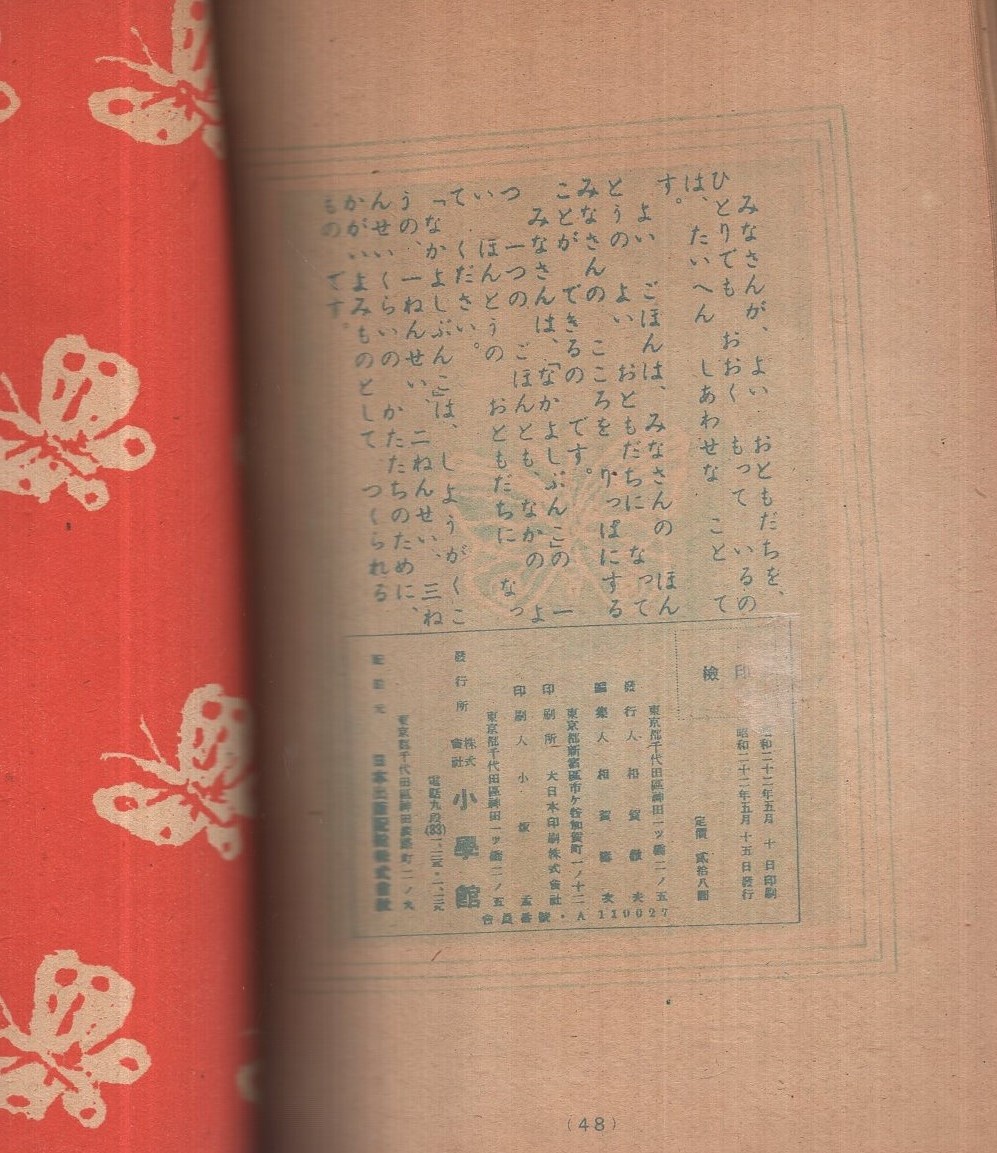 みなさんが、よい おともだちを、
ひとりでも おおく もって いるの
は、たいへん しあわせな こと で
す。
よい ごほんは、みなさんの ほん
とうの よい おともだちに なって
みなさんの こころを りっぱにする
ことが できるの です。
みなさんは、「なかよしぶんこ」の 一
つ 一つの ごほんとも、なかの よ
い ほんとうの おともだちに なっ
て ください。
「なかよしぶんこ」は、しようがくこ
うの、一ねんせい、二ねんせい、三ね
んせいくらいの かたたちのために、
かがいよみものとして つくられる
もの です。
檢 印
昭和二十二年五月 十 日印刷
昭和二十二年五月十五日發行
定價 貳拾八圓
東京都千代田區神田一ツ橋二ノ五
發行人 相賀徹夫
編集人
東京都新宿區市ケ谷加賀町一ノ十二
印刷所 大日本印刷株式會社
印刷人 小坂 孟
東京都千代田區神田一ツ橋二ノ五
發行所 株式會社 小學館
電話九段(33)
會員番號・A110027
東京都千代田區神田淡路町二ノ九
配給元 日本出版配給株式會社
(48)